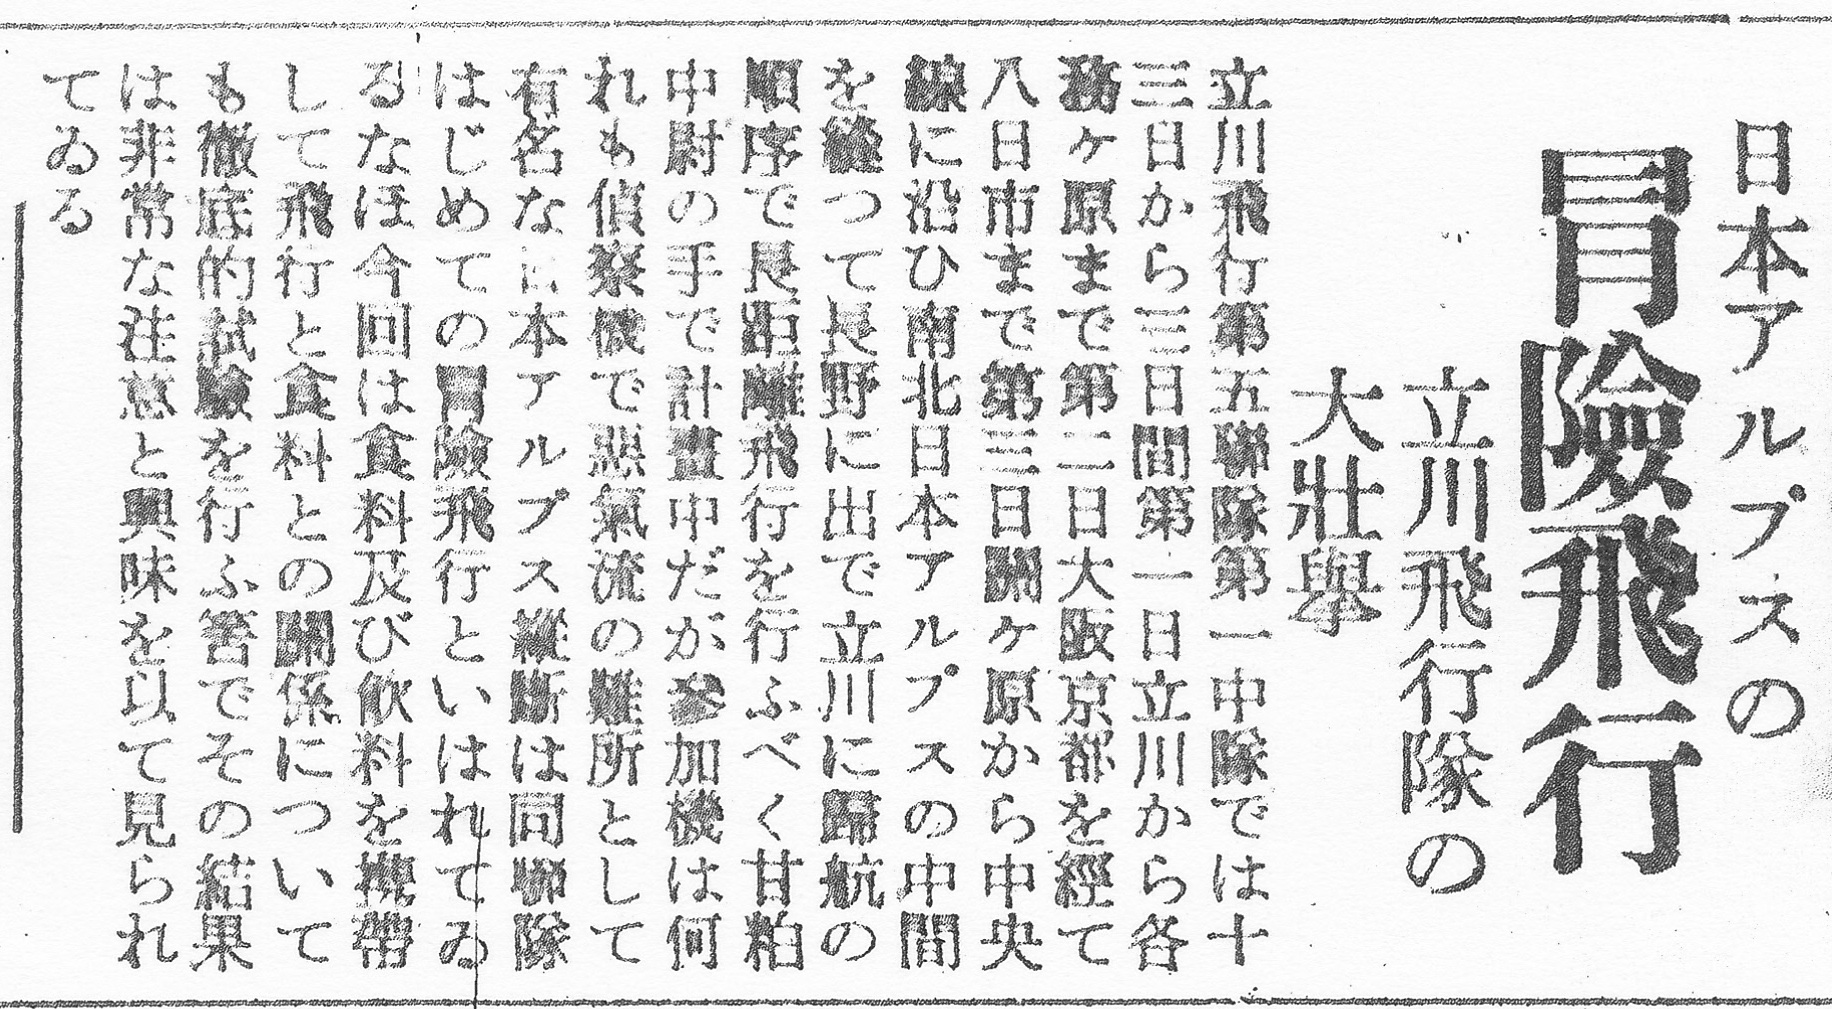 日本アルプスの
冒險飛行
立川飛行隊の
大壯擧
立川飛行第五聯隊第一中隊では十
三日から三日間第一日立川から各
務ヶ原まで第二日大阪京都を經て
八日市まで第三日關ヶ原から中央
線に沿ひ南北日本アルプスの中間
を縫つて長野に出で立川に歸航の
順序で長距離飛行を行ふべく甘粕
中尉の手で計畫中だが參加機は何
れも偵察機で惡氣流の難所として
有名な日本アルプス縱斷は同聯隊
はじめての冒險飛行といはれてゐ
るなほ今回は食料及び飮料を携帶
して飛行と食料との關係について
も徹底的試驗を行ふ筈でその結果
は非常な注意と興味を以て見られ
てゐる